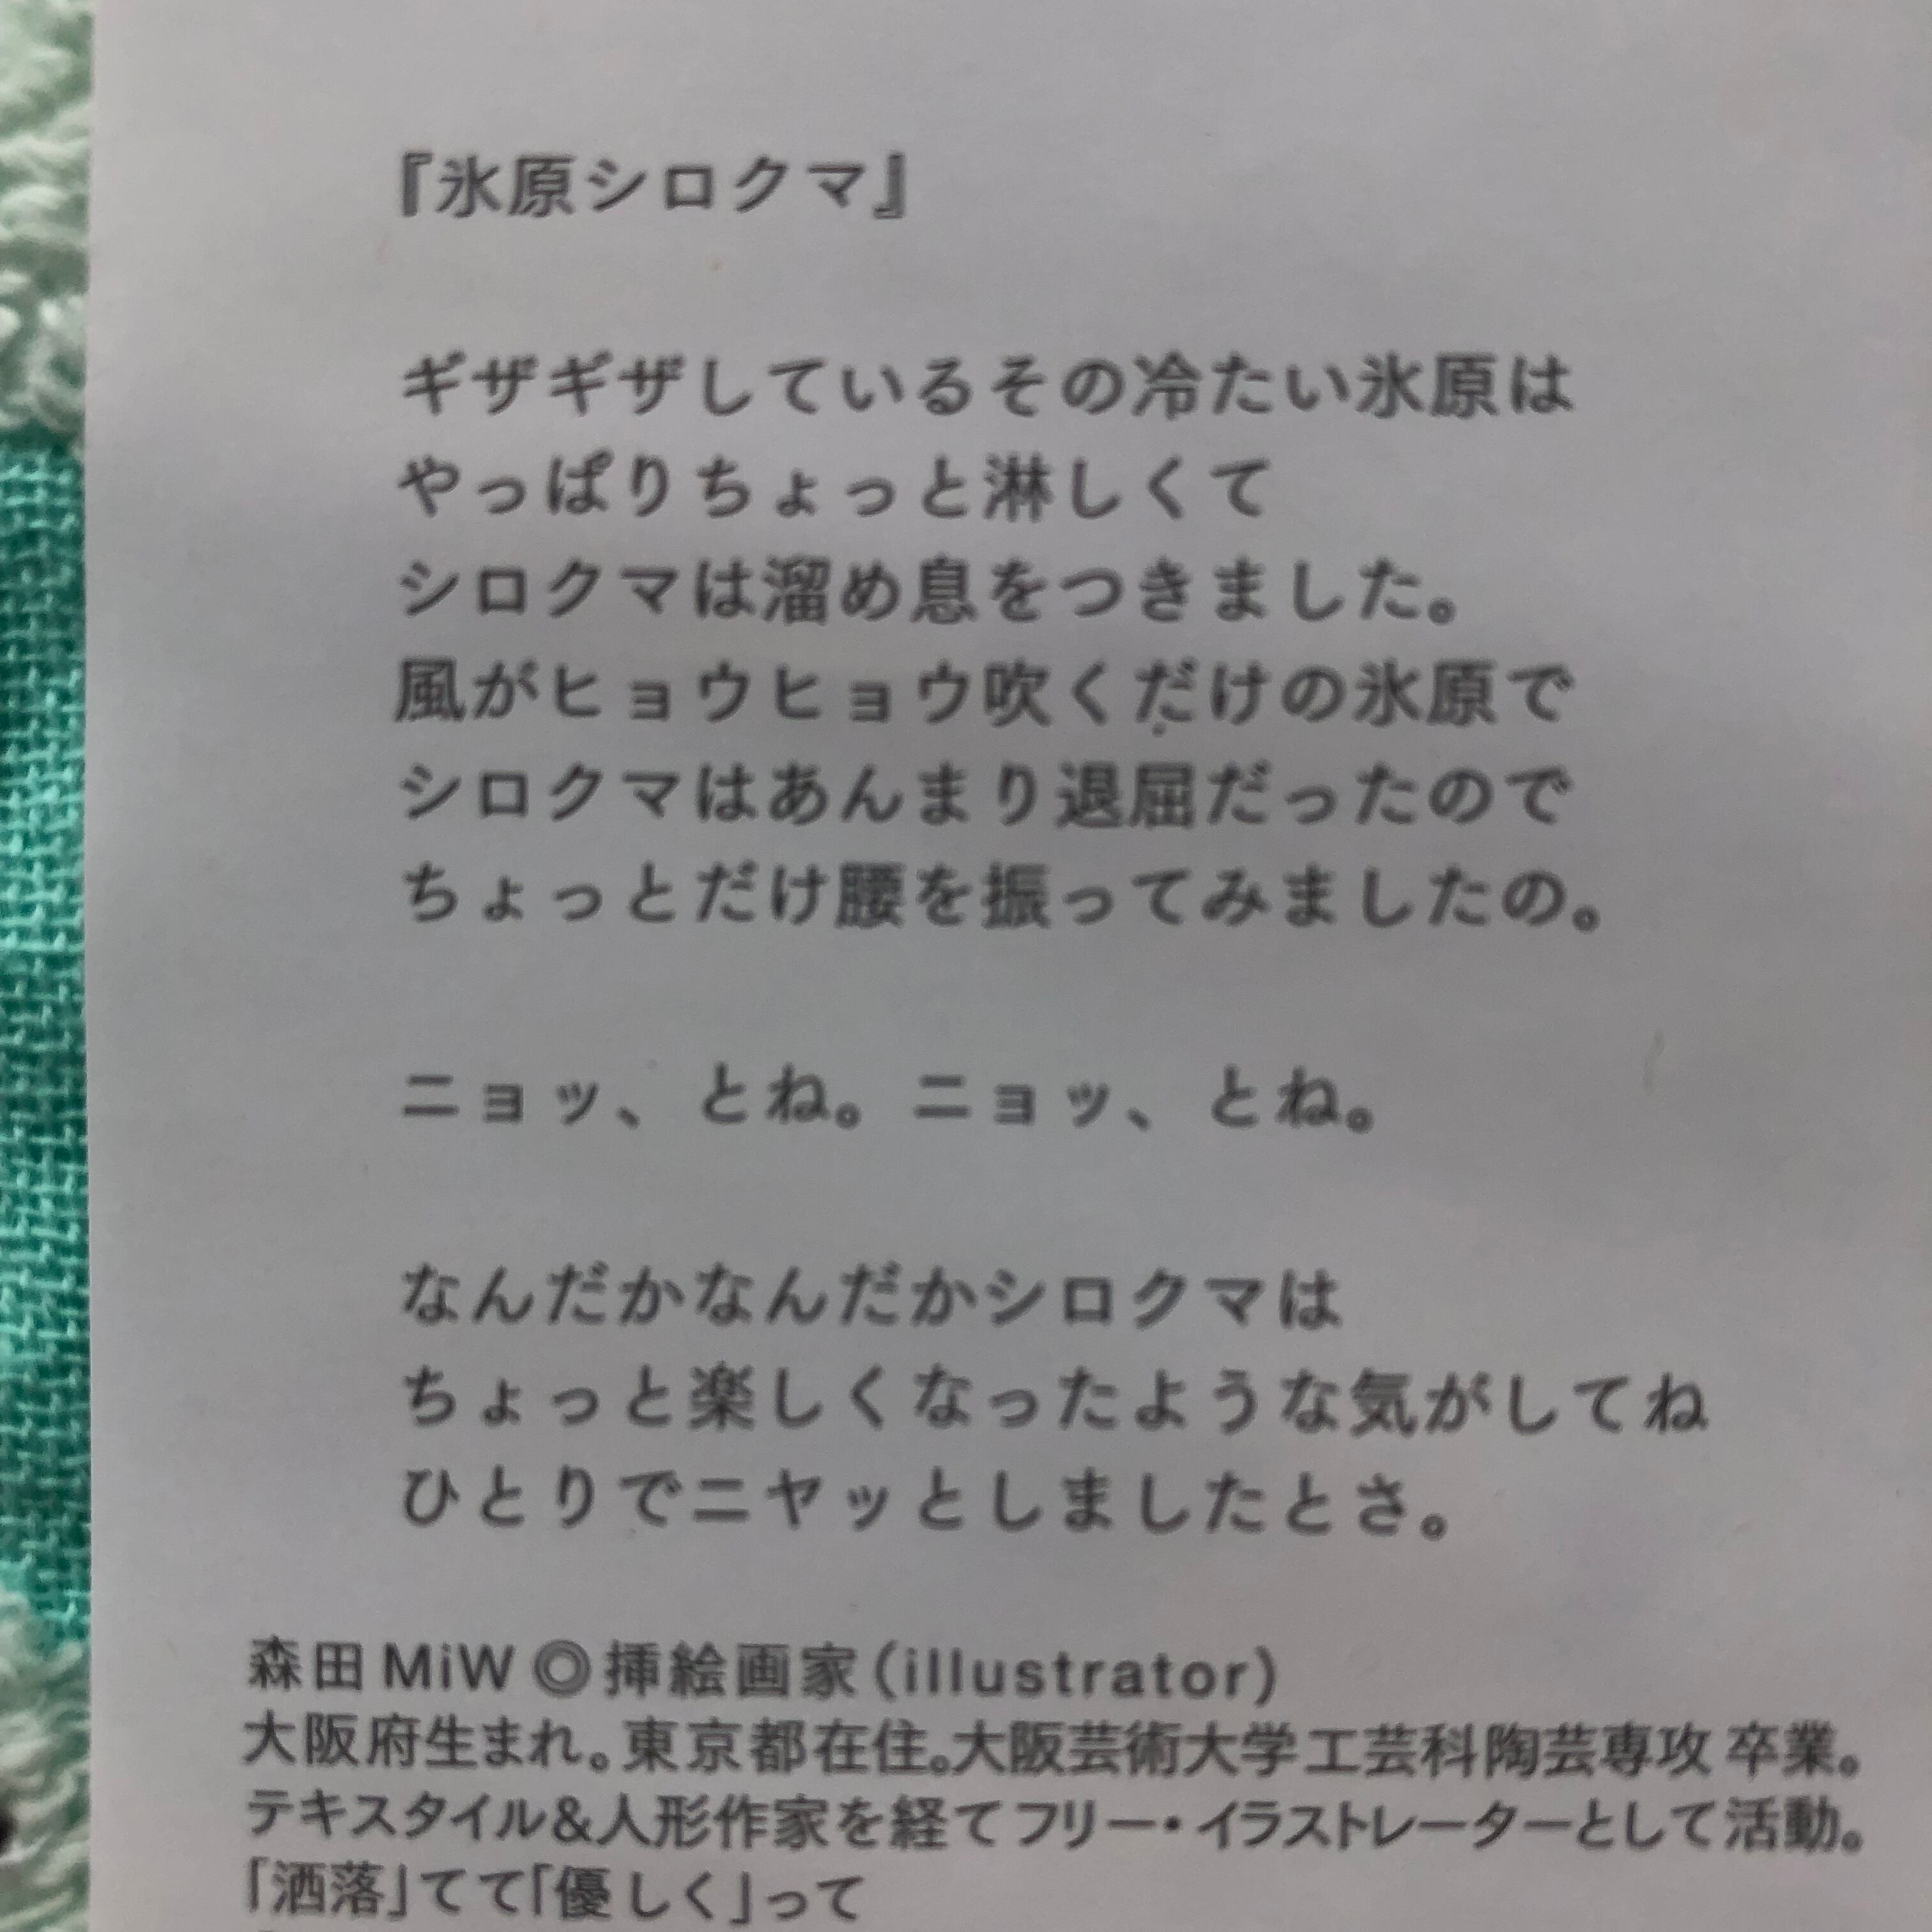 『氷原シロクマ』
ギザギザしているその冷たい氷原は
やっぱりちょっと淋しくて
シロクマは溜め息をつきました。
風がヒョウヒョウ吹くだけの氷原で
シロクマはあんまり退屈だったので
ちょっとだけ腰を振ってみましたの。
ニョッ、とね。ニョッ、とね。
なんだかなんだかシロクマは
ちょっと楽しくなったような気がしてね
ひとりでニヤッとしましたとさ。
森田MiW◎挿絵画家(illustrator)
大阪府生まれ。東京都在住。大阪芸術大学工芸科陶芸専攻 卒業。
テキスタイル&人形作家を経てフリー・イラストレーターとして活動。
「洒落」てて「優しく」って